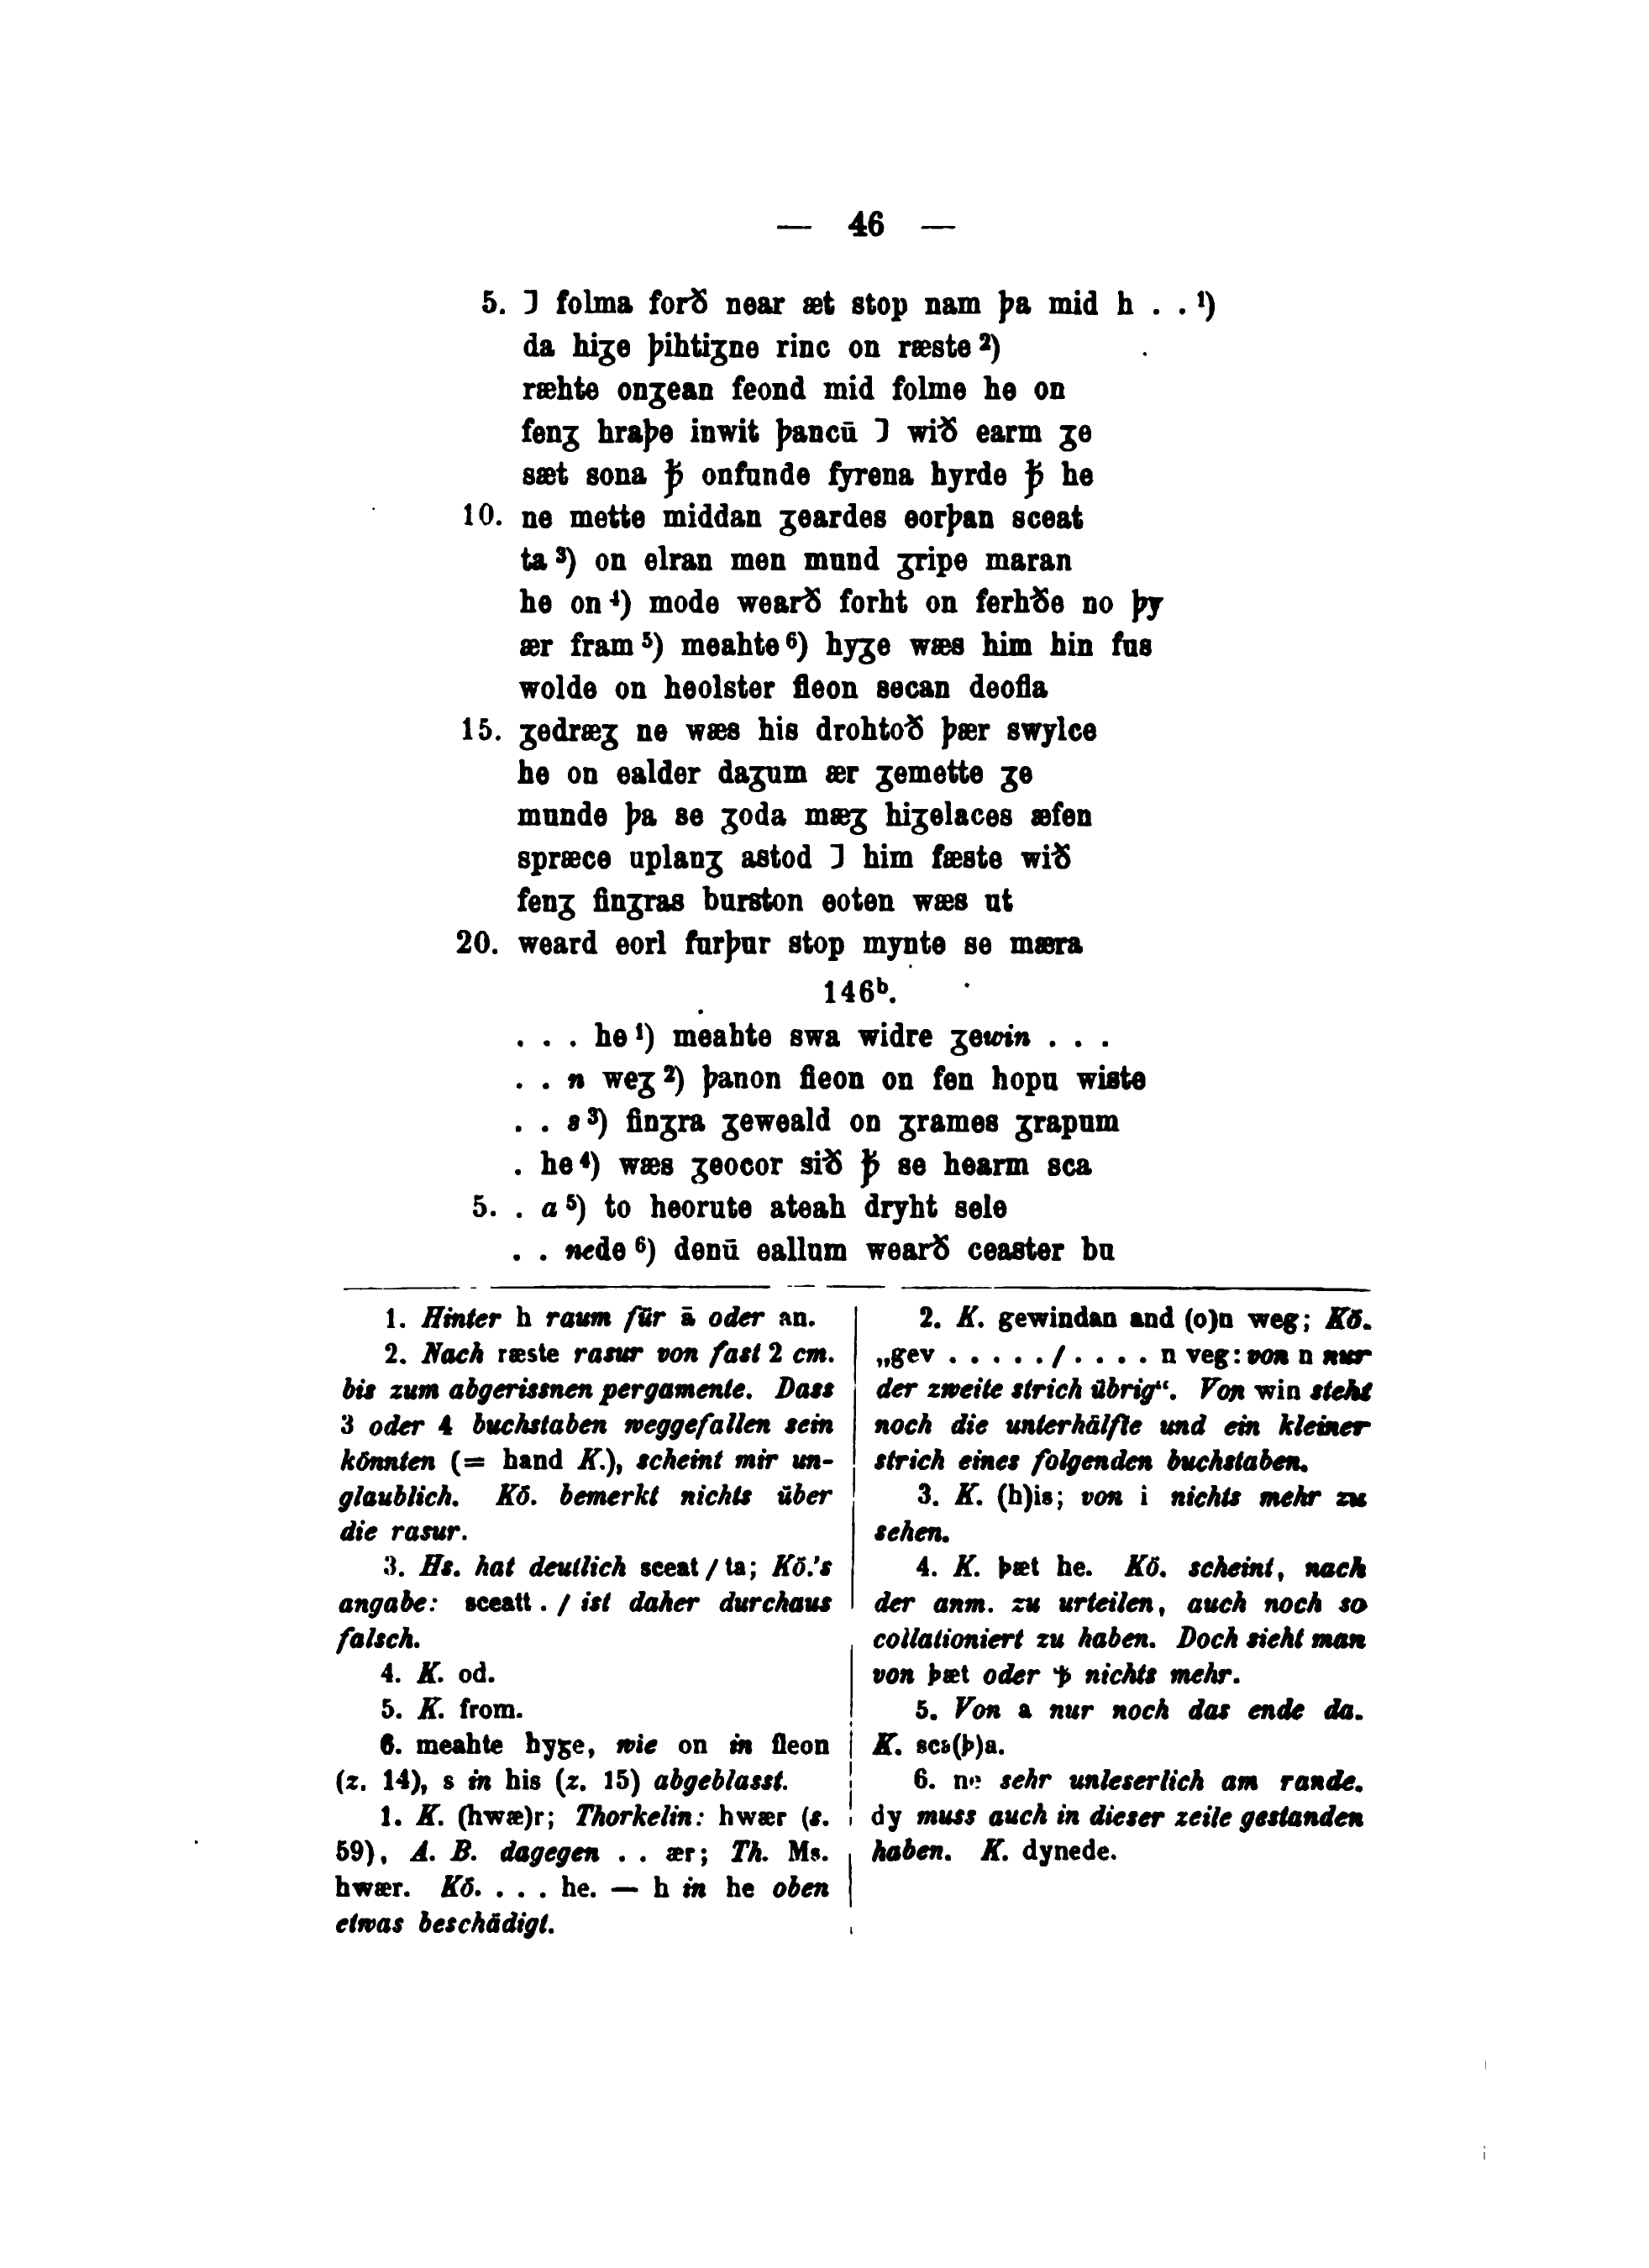 — 46 —
5. ⁊ folma forð near æt stop nam þa mid h . . ¹)
da hiʒe þihtiʒne rinc on ræste ²)
ræhte onʒean feond mid folme he on
fenʒ hraþe inwit þancū ⁊ wið earm ʒe
sæt sona ꝥ onfunde fyrena hyrde ꝥ he
10. ne mette middan ʒeardes eorþan sceat
ta ³) on elran men mund ʒripe maran
he on ⁴) mode wearð forht on ferhðe no þy
ær fram ⁵) meahte ⁶) hyʒe wæs him hin fus
wolde on heolster fleon secan deofla
15. ʒedræʒ ne wæs his drohtoð þær swylce
he on ealder daʒum ær ʒemette ʒe
munde þa se ʒoda mæʒ hiʒelaces æfen
spræce uplanʒ astod ⁊ him fæste wið
fenʒ finʒras burston eoten wæs ut
20. weard eorl furþur stop mynte se mæra
146ᵇ.
. . . he ¹) meahte swa widre ʒewin . . .
. . n weʒ ²) þanon fleon on fen hopu wiste
. . s ³) finʒra ʒeweald on ʒrames ʒrapum
. he ⁴) wæs ʒeocor sið ꝥ se hearm sca
5. . a ⁵) to heorute ateah dryht sele
. . nede ⁶) denū eallum wearð ceaster bu
1. Hinter h raum für ā oder an.
2. Nach ræste rasur von fast 2 cm.
bis zum abgerissnen pergamente. Dass
3 oder 4 buchstaben weggefallen sein
könnten (= hand K.), scheint mir un-
glaublich. Kö. bemerkt nichts über
die rasur.
3. Hs. hat deutlich sceat / ta; Kö.'s
angabe: sceatt . / ist daher durchaus
falsch.
4. K. od.
5. K. from.
6. meahte hyʒe, wie on in fleon
(z. 14), s in his (z. 15) abgeblasst.
1. K. (hwæ)r; Thorkelin: hwær (s.
59), A. B. dagegen . . ær; Th. Ms.
hwær. Kö. . . . he. — h in he oben
etwas beschädigt.
2. K. gewindan and (o)n weg; Kö.
„gev . . . . . / . . . . n veg: von n nur
der zweite strich übrig“. Von win steht
noch die unterhälfte und ein kleiner
strich eines folgenden buchstaben.
3. K. (h)is; von i nichts mehr zu
sehen.
4. K. þæt he. Kö. scheint, nach
der anm. zu urteilen, auch noch so
collationiert zu haben. Doch sieht man
von þæt oder ꝥ nichts mehr.
5. Von a nur noch das ende da.
K. sca(þ)a.
6. ne sehr unleserlich am rande.
dy muss auch in dieser zeile gestanden
haben. K. dynede.